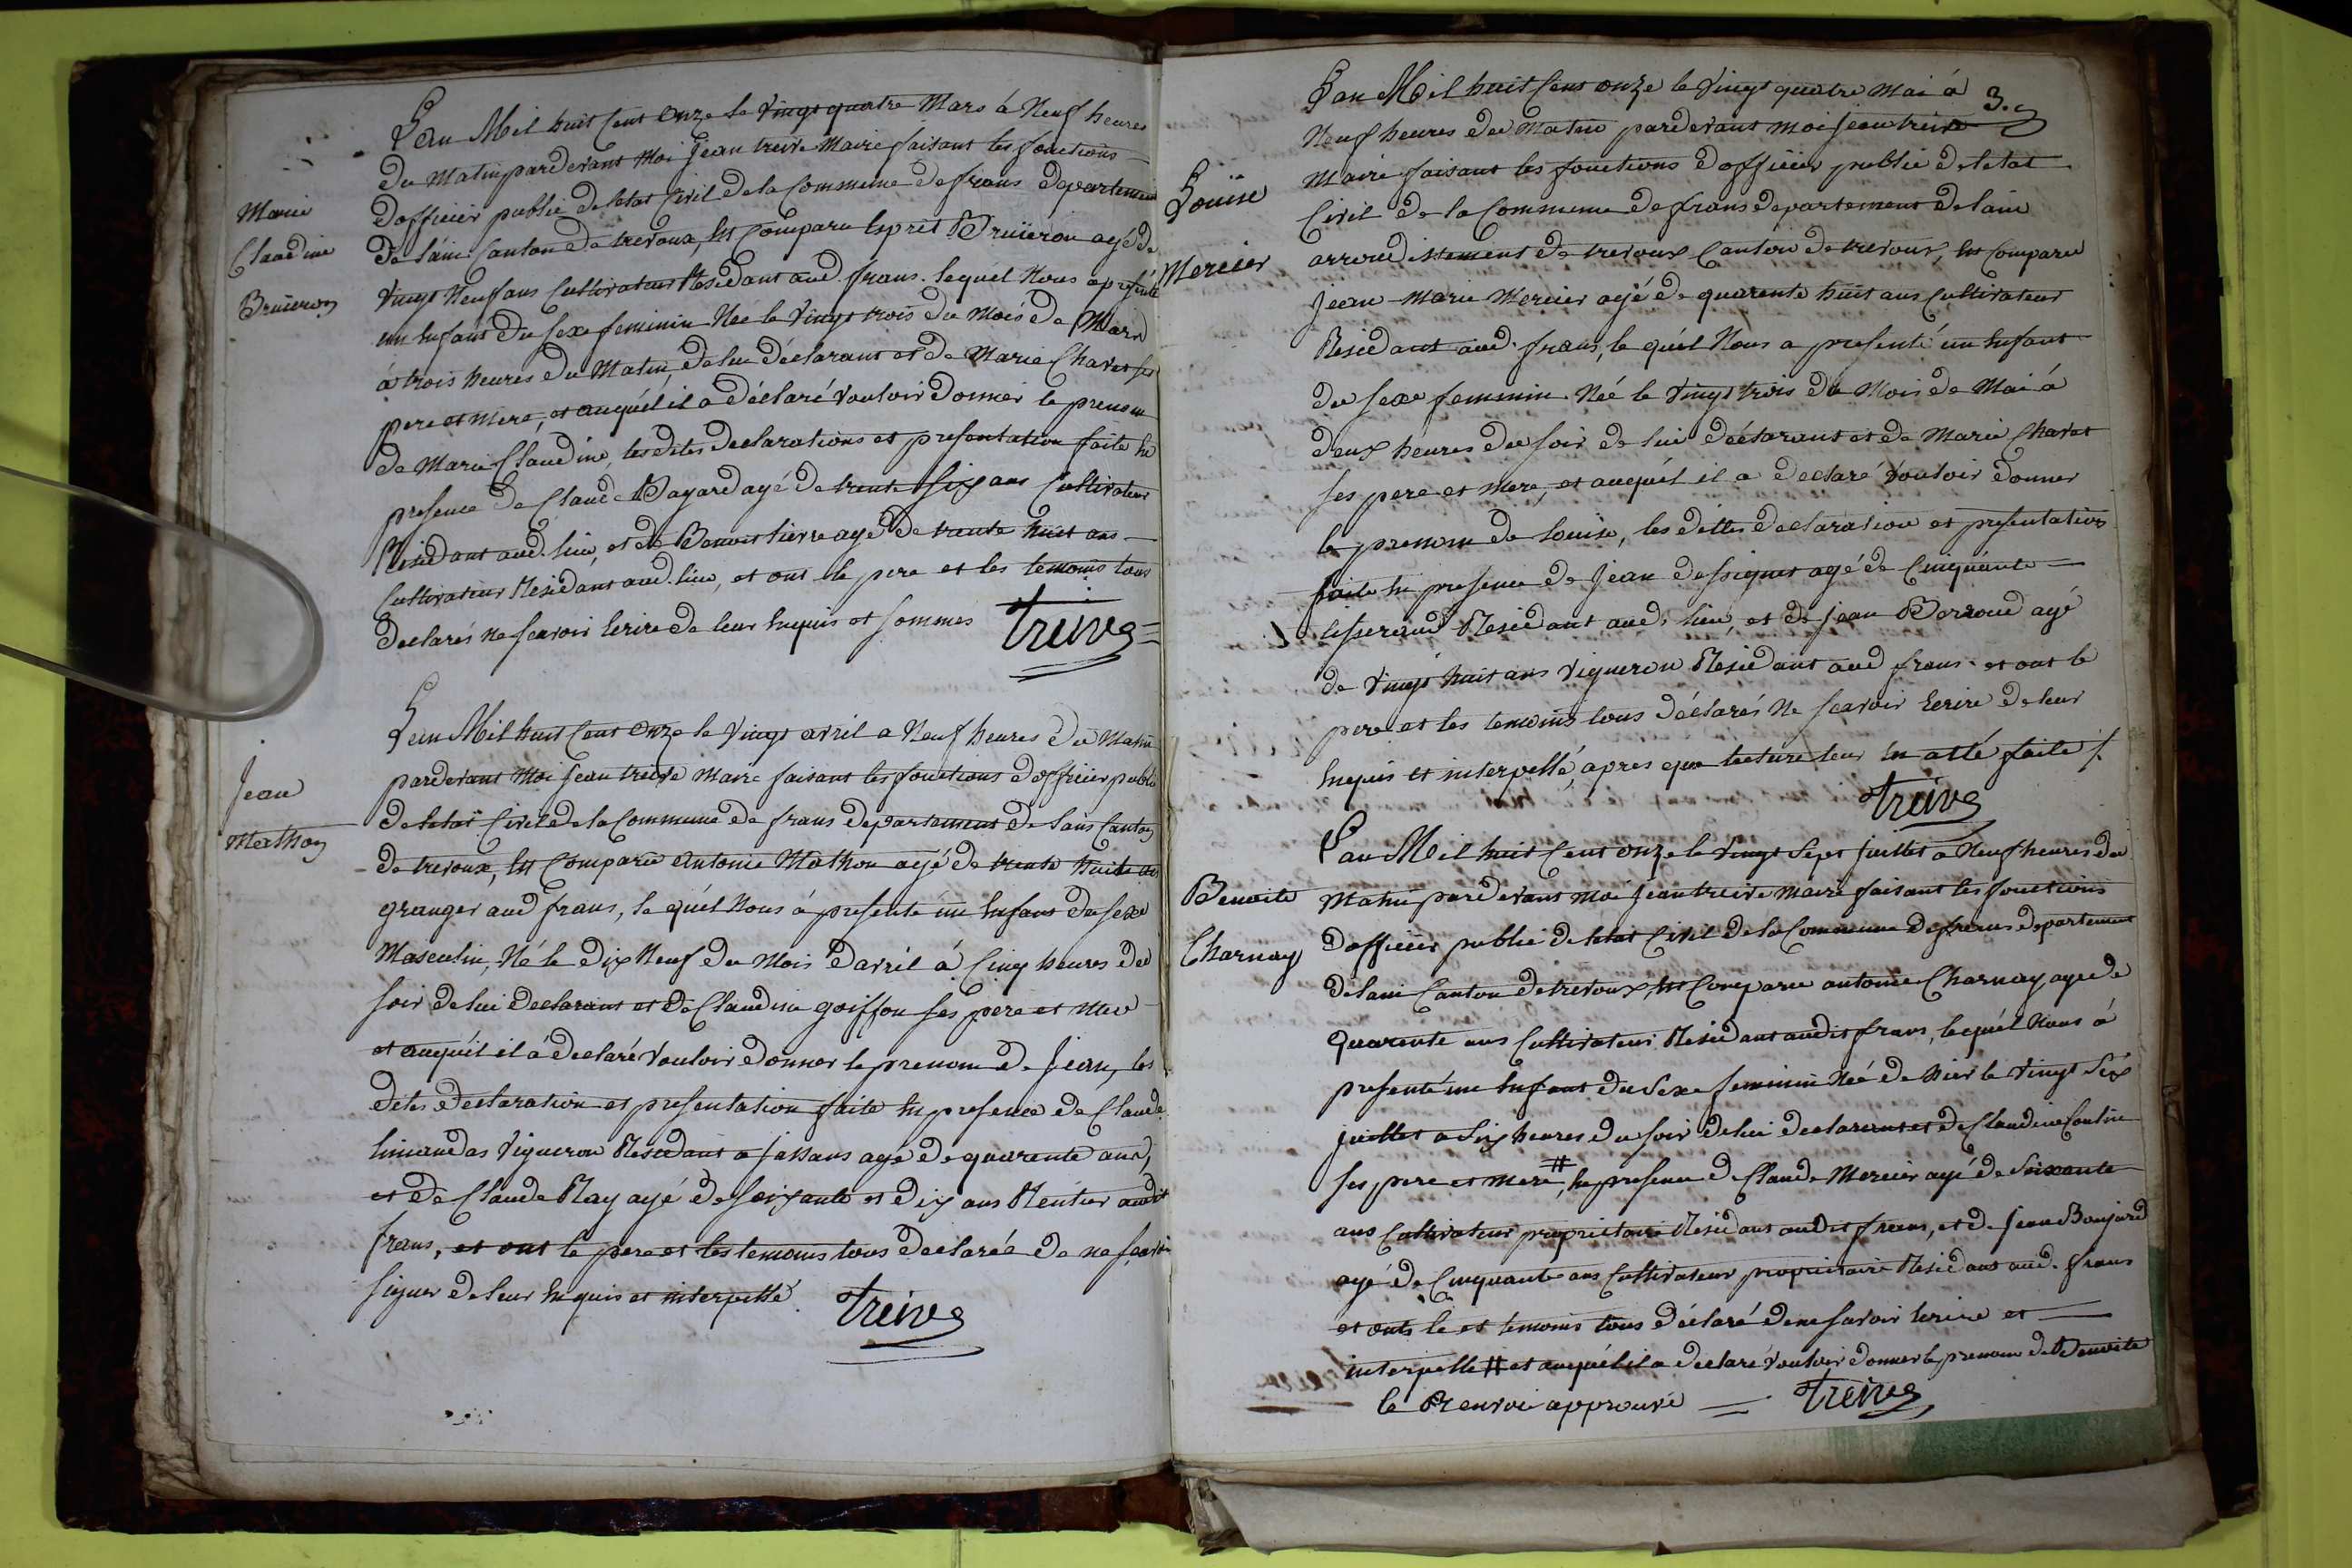 Marie
Claudine
Bruieron
L'an Mil huit Cent Onze le Vingt quatre Mars à Neuf heures
Du Matin pardevant Moi Jean treive Maire faisant les fonctions
D'officier public de letat Civil de la Commune de frans departement
De l'ain Canton de trevoux, Est Comparu Esprit Bruieron agé de
Vingt Neuf ans Cultivateur Residant aud. frans. lequel Nous a presenté
un Enfant du sexe feminin Née le Vingt trois du Mois de Mars
à trois heures du Matin, de lui déclarant et de Marie Chavet ses
pere et mere, et auquél il a déclaré Vouloir Donner le prenom
de Marie Claudine, les dites declarations et presentation faite En
presence de Claude Bayard agé de trente six ans Cultivateur
Residant aud. lieu, et de Benoit lievre agé de trente huit ans
Cultivateur Residant aud. lieu, et ont le pere et les temoins tous
Declarés ne scavoir Ecrire de leur Enquis et sommés
Treive
Jean
Mathon
L'an Mil huit Cent Onze le Vingt avril a Neuf heures Du Matin
pardevant Moi Jean treive Maire faisant les fonctions d'officier public
de letat Civil de la Commune de frans departement de lain Canton
de trevoux, Est Comparu Antoine Mathon agé de trente huit ans
granger aud frans, le quél Nous à presenté un Enfant du sexe
Masculin, Né le dix Neuf du Mois d'avril à Cinq heures du
soir de lui declarant et de Claudine goiffon ses pere et mere
et auquél il à declaré Vouloir donner le prenom de Jean, les
dites declaration et presentation faite En presence de Claude
limandas Vigneron Residant a jassans agé de quarente ans,
et de Claude Ray agé de soixante et dix ans Rentier audit
frans, et ont le pere et les temoins tous declarés de ne scavoir
signer de leur Enquis et interpellé.
Treive
3.
Louise
Mercier
L'an Mil huit Cent onze le Vingt quatre Mai á
Neuf heures du Matin pardevant Moi Jean treive
Maire faisant les fonctions d'officier public de letat
Civil de la Commune de frans departement de lain
arrondissement de trevoux Canton de trevoux, Est Comparu
Jean Marie Mercier agé de quarente huit ans Cultivateur
Residant aud. frans, le quél Nous a presenté un Enfant
du sexe feminin. Née le Vingt trois du Mois de Mai á
deux heures du soir de lui déclarant et de Marie Chavet
ses pere et mere, et auquél il a declaré Vouloir donner
le prenom de Louise, les dittes declaration et presentation
faite En presence de Jean dessignet agé de Cinquante
tisserand Residant aud. lieu, et de Jean Berroud agé
de Vingt huit ans Vigneron Residant aud frans. et ont le
pere et les temoins tous déclarés Ne scavoir Ecrire de leur
Enquis et interpellé, apres que lecture leur En a été faite /.
Treive
Benoite
Charnay
L'an Mil huit Cent onze le Vingt Sept juillet a Neuf heures du
Matin pardevant Moi Jean treive Maire faisant les fonctions
d'officier public de letat Civil de la Commune de frans departement
de lain Canton de trevoux, Est Comparu antoine Charnay agé de
quarente ans Cultivateur Residant audit frans, lequél Nous á
presenté un Enfant du Sexe feminin Née de hier le Vingt Six
juillet a Six heures du soir de lui declarant et de Claudine
ses pere et mere, # En presence de Claude Mercier agé de Soixante
ans Cultivateur proprietaire Residant audit frans, et de Jean Bonjard
agé de Cinquante ans Cultivateur proprietaire Residant aud. frans
et onts le et temoins tous déclaré de ne savoir Ecrire et
interpelle # et auquél il a declaré Vouloir donner le prenom de Benoite
le Renvoi approuvé
Treive